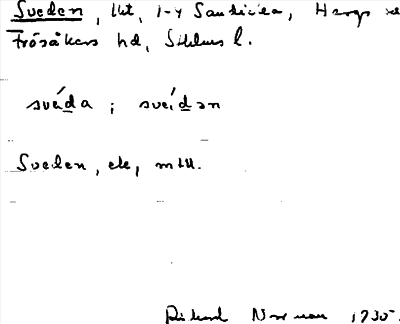 Sveden, lht, 1-4 Sandvika, Hargs sn
Frösåkers hd, Sthlms l.
svéda ; svéidən
Sveden, ek, mtl.
Rikard Norman 1935.